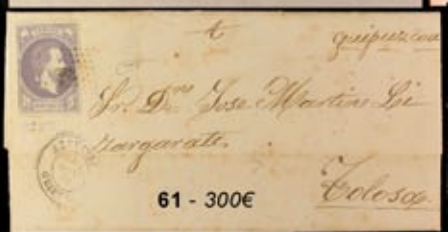 guipuzcoa
Sr. Dn. Jose Martin Li
zargarate.
Tolosa
61 - 300€